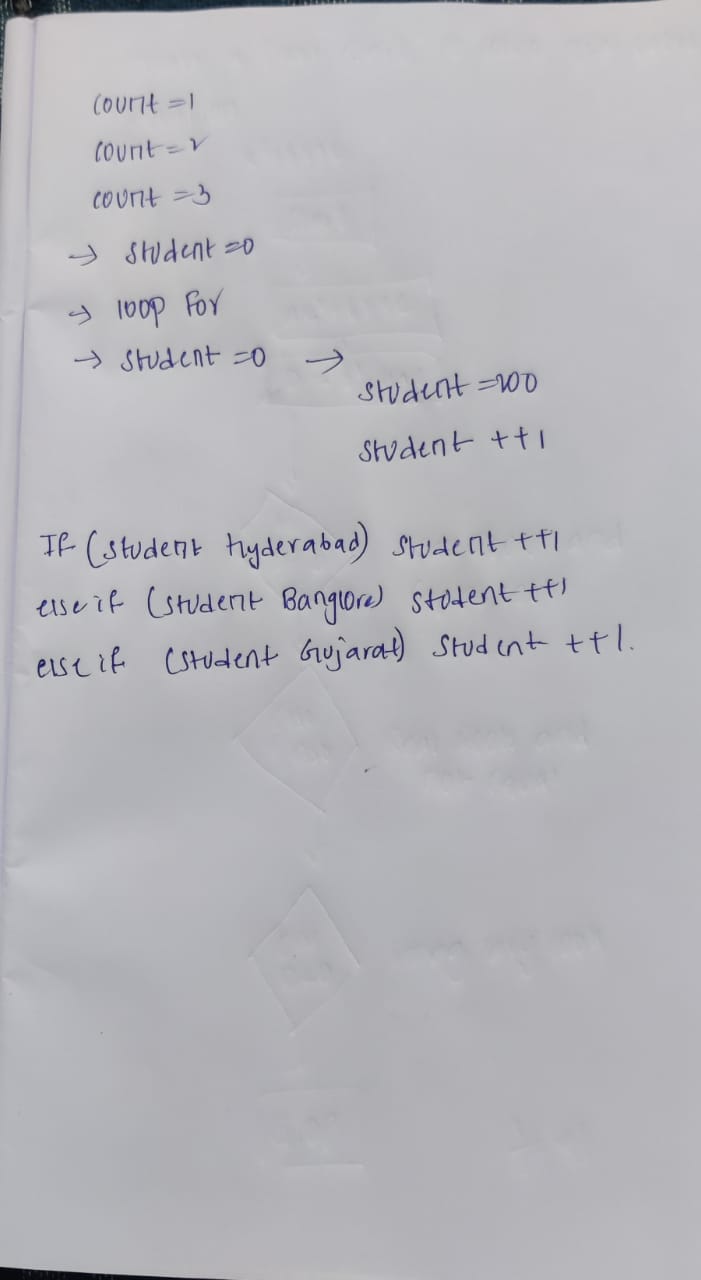 count =1
count = 2
count =3
→ student =0
→ loop For
→ student =0 →
student =200
student ++1
If (student Hyderabad) student ++1
else if (student Banglore) student ++1
else if (student Gujarat) student ++1.